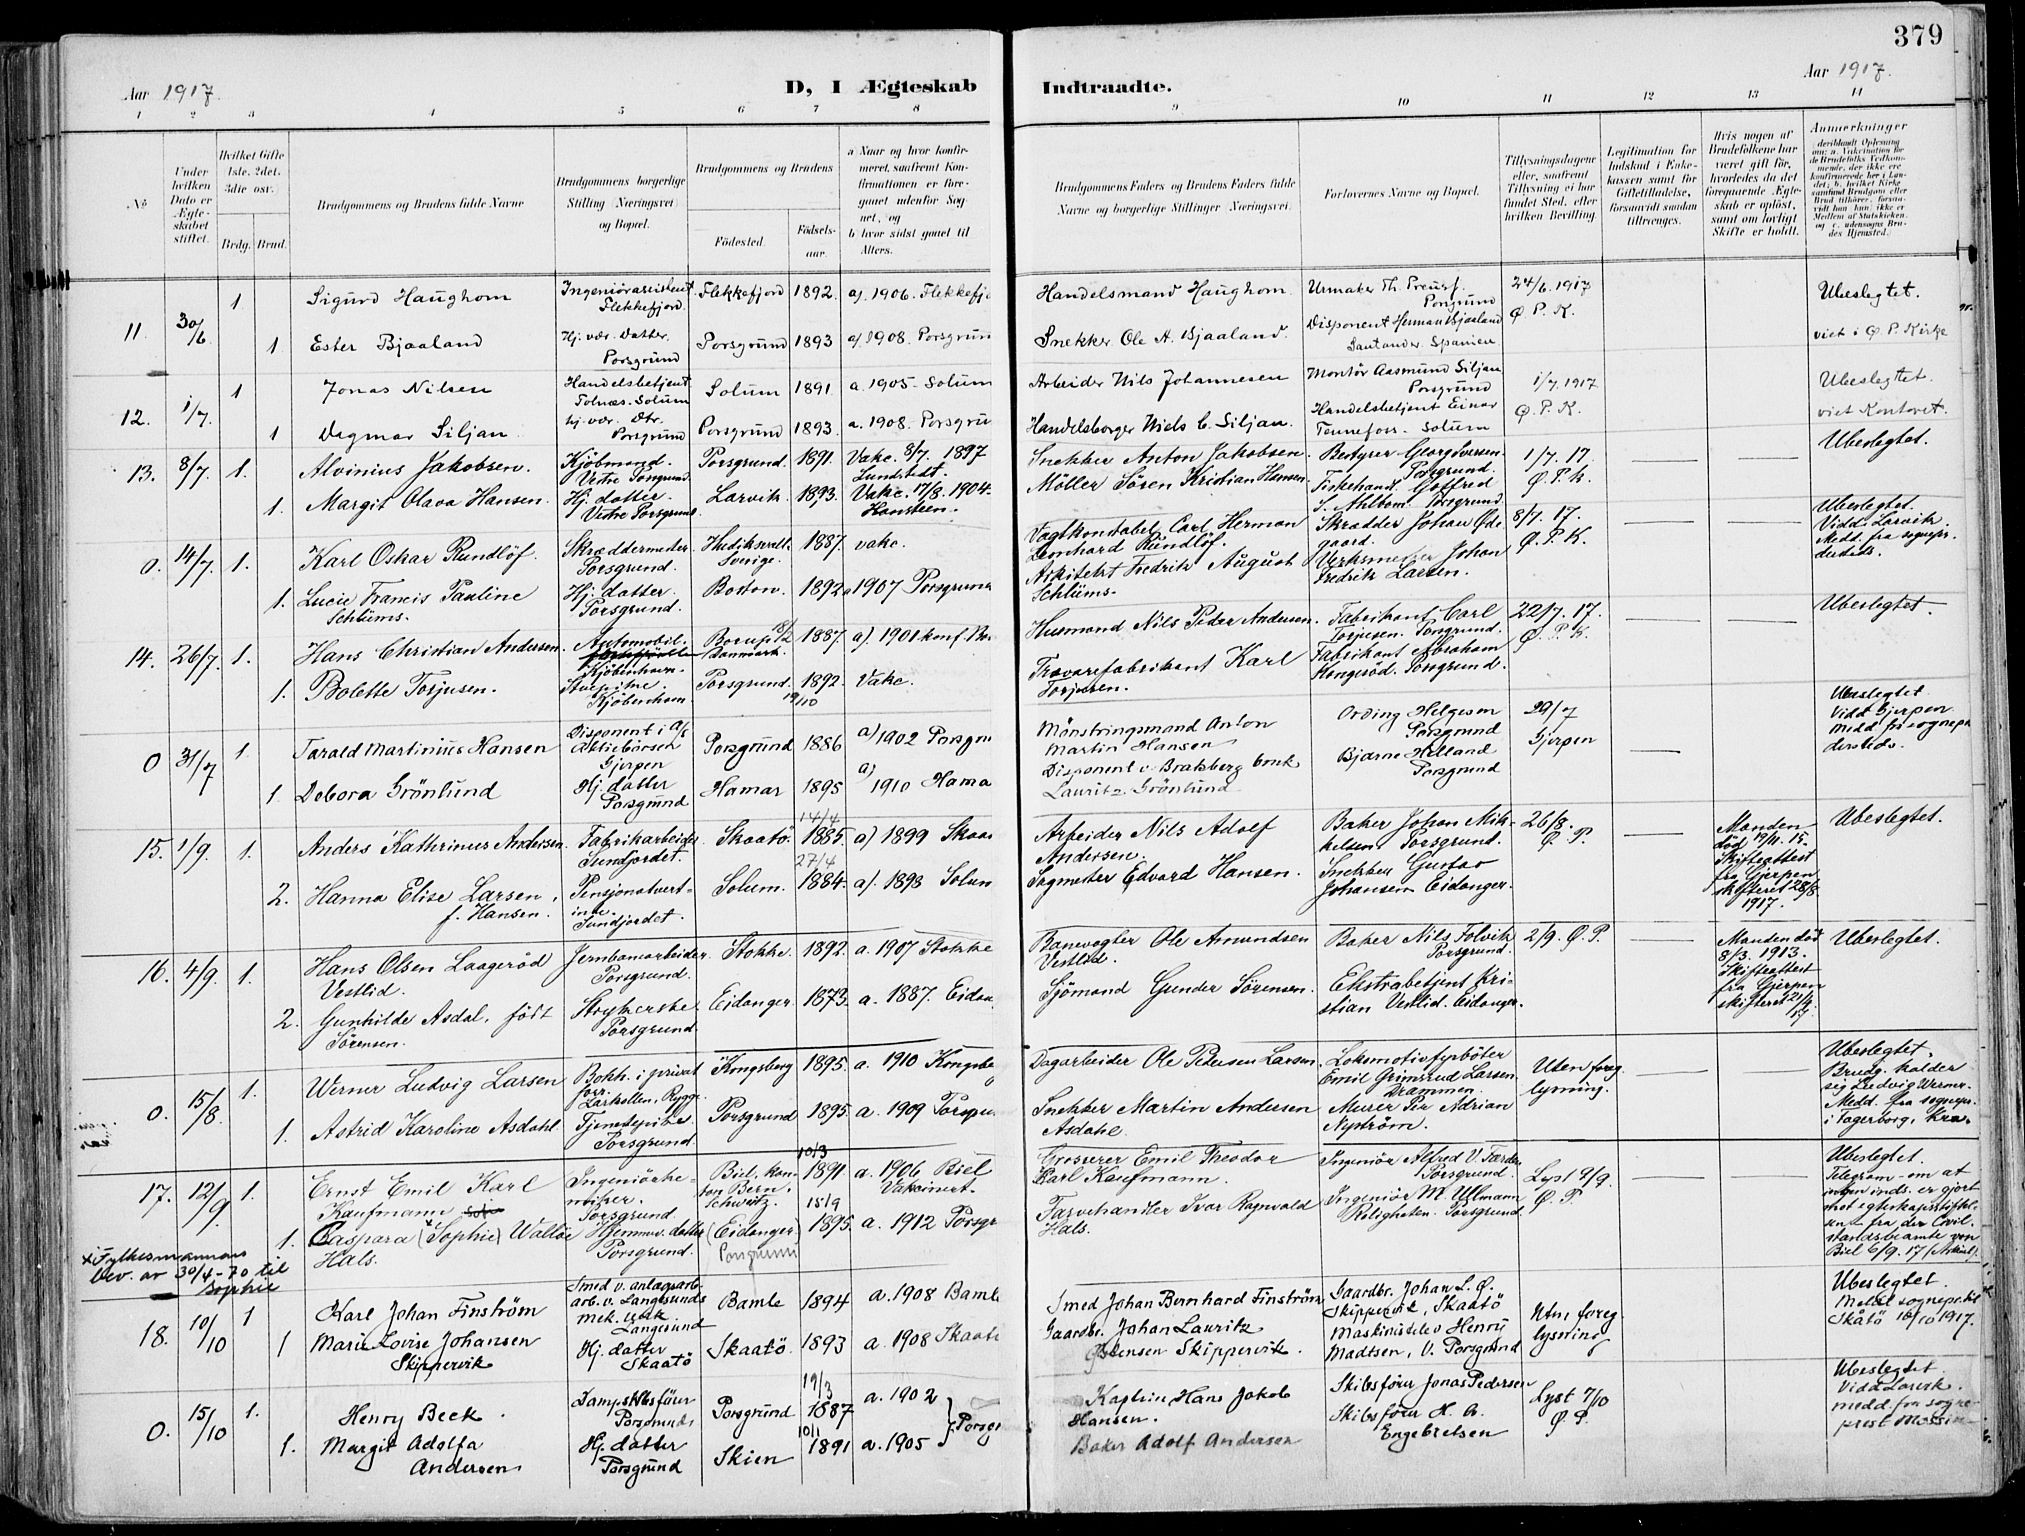 379
Aar 1917.
D, I Ægteskab Indtraadte.
Aar 1917.
1 2 3 4 5 6 7 8 9 10 11 12 13 14
No
Under hvilken Dato er Ægteskabet stiftet.
Hvilket Gifte 1ste, 2det, 3die osv.
Brdg. Brud.
Brudgommens og Brudens fulde Navne
Brudgommens borgerlige Stilling (Næringsvei) og Bopæl.
Brudgommens og Brudens
Fødested.
Fødselsaar.
a Naar og hvor konfirmeret, saafremt Konfirmationen er foregaaet udenfor Sognet, og
b hvor sidst gaaet til Alters.
Brudgommens Faders og Brudens Faders fulde Navne og borgerlige Stillinger (Næringsvei)
Forlovernes Navne og Bopæl.
Tillysningsdagene eller, saafremt Tillysning ei har fundet Sted, efter hvilken Bevilling.
Legitimation for Indskud i Enkekassen samt for Giftetilladelse, forsaavidt saadan tiltrænges.
Hvis nogen af Brudefolkene har været gift før, hvorledes da det foregaaende Ægteskab er opløst, samt om lovligt Skifte er holdt.
Anmerkninger
deriblandt Oplysning om: a. Vakcination for de Brudefolks Vedkommende, der ikke ere konfirmerede her i Landet; b. hvilket Kirkesamfund Brudgom eller Brud tilhører, forsaavidt han (hun) ikke er Medlem af Statskirken, og c. udensogns Brudes Hjemsted.
11. 30/6 1 Sigurd Haughom Ingeniørassistent Flekkefjord. Flekkefjord 1892. a). 1906. Flekkefj Handelsmand Haughom Urmaker Th. Preusf. Porsgrund 24/6. 1917 Ø. P. K. Ubeslegtet.
1. Ester Bjaaland Hj. vær. Datter. Porsgrund Porsgrund 1893 a) 1908. Porsgrun Snekker Ole A. Bjaaland. Disponent Herman Bjaaland Santander Spanien viet i Ø. P. Kirke
12. 1/7. 1 Jonas Nilsen Handelsbetjent Tolnæs. Solum Solum 1891 a. 1905 - Solum Arbeider Nils Johannesen Montör Aasmund Siljan Porsgrund 1/7. 1917 Ø. P. K. Ubeslegtet.
1 Dagmar Siljan hj. vær. Dtr. Porsgrund Porsgrund 1893. a. 1908. Porsgru Handelsborger Niels C. Siljan. Handelsbetjent Einar Tennefoss. Solum viet Kontoret.
13. 8/7. 1. Alvinius Jakobsen. Kjöbmand. Vestre Porsgrund Porsgrund. 1891. Vakc. 8/7. 1897 Lundstedt. Snekker Anton Jakobsen. Bestyrer Georg Iversen. Porsgrund. 1/7. 17. Ø. P. K. Ubeslegtet.
1. Margit Olava Hansen. Hj. datter. Vestre Porsgrund. Larvik. 1893. Vakc. 17/8. 1904. Hansteen. Möller Sören Kristian Hansen. Fiskehandl. Gotfred S. Ahlbom. Porsgrund.
0. 14/7. 1. Karl Oskar Rundlöf. Skræddermester. Porsgrund. Hudiksvall. Sverige. 1887. vakc. Vagtkonstabel Carl Herman Leonhard Rundlöf. Skrædder Johan Ödegaard. 8/7. 17. Ø. P. K. Ubeslegtet. Vidd. Larvik. Medd. fra sognepr. dersteds.
1. Lucie Francis Pauline Schlüms. Hj. datter. Porsgrund. Boston. 1892 a 1907 Porsgrund Arkitekt Fredrik August Schlüms. Verksmester Johan Fredrik Larsen.
14. 26/7. 1. Hans Christian Andersen. Automobil. Kjöbenhavn. Borup Danmark. 18/2 1887. a). 1901 konf. Bo Husmand Nils Peder Andersen. Fabrikant Carl Torjusen. Porsgrund. 22/7. 17. Ø. P. K. Ubeslegtet.
1. Bolette Torjusen. Stuepike. Kjöbenhavn. Porsgrund. 1892. 19/10 Vakc. Trævarefabrikant Karl Torjusen. Fabrikant Abraham Kongeröd. Porsgrund.
0 31/7 1 Tarald Martinius Hansen Disponent i A/S Aktiebörsen Gjerpen Porsgrund 1886 a) 1902 Porsgru Mönstringsmand Anton Martin Hansen Ording Helgesen Porsgrund 29/7 Gjerpen Ubeslegtet Vidd Gjerpen Medd fra sognepr dersteds.
1. Debora Grönlund Hj. datter Porsgrund Hamar 1895 a) 1910 Hama Disponent v. Bratsberg bruk Lauritz Grönlund Bjarne Helland Porsgrund
15. 1/9. 1. Anders Kathrinus Andersen. Fabrikarbeider Sundjordet. Skaatö. 14/4 1885. a) 1899 Skaa Arbeider Nils Adolf Andersen. Baker Johan Mikkelsen. Porsgrund. 26/8. Ø. P. Manden död 19/11. 15. Skifteattest fra Gjerpen skifteret 28/8 1917. Ubeslegtet.
2. Hanna Elise Larsen, f. Hansen. Pensjonatvertinne. Sundjordet. Solum. 27/4 1884. a). 1898 Solun Sagmester Edvard Hansen. Snekker Gustav Johansen Eidanger.
16. 4/9. 1. Hans Olsen Laagerød Vestlid. Jernbanearbeider Porsgrund. Stokke. 1892. a. 1907 Stokke Banevogter Ole Amundsen Vestlid. Baker Nils Folvik Porsgrund. 2/9. Ø. P. Manden död 8/3. 1913. Skifteattest fra Gjerpen skifteret 21/9. 17. Ubeslegtet.
2. Gunhilde Asdal, födt Sörensen. Strykerske Porsgrund. Eidanger. 1873. a. 1887. Eidan Sjömand Gunder Sörensen. Ekstrabetjent Kristian Vestlid. Eidanger.
0. 15/8. 1. Werner Ludvig Larsen Bokh. i privat forr. Larkollen, Rygge. Kongsberg 1895. a. 1910 Kongsbe Dagarbeider Ole Pedersen Larsen. Lokomotivfyrböter Emil Grimsrud Larsen. Drammen. Uten foreg lysning. Ubeslegtet. Brudg. kalder sig Ludvig Werner. Medd. fra sognepr. i Fagerborg, Kra.
1. Astrid Karoline Asdahl. Tjenestepike. Porsgrund Porsgrund 1895. a. 1909 Porsgru Snekker Martin Andersen Asdahl. Murer Per Adrian Nyström.
17. 12/9. 1. Ernst Emil Karl Kaufmann Ingeniörkemiker. Porsgrund. Biel, kanton Bern. Schweitz. 10/3 1891. a. 1906 Biel Vakcinert. Grosserer Emil Theodor Karl Kaufmann. Ingeniör Alfred V. Porsgrund. Lyst 9/9. Ø. P. Ubeslegtet. Telegram om at ingen inds. er gjort mot egteskapsstiftelsen fra den Civilstandsbeamte von Biel 6/9. 17 (Arkivl).
1. Caspara x (Sophie) Walløe Hals. Hjemmev. datter Porsgrund. (Eidanger. Porsgrund 15/9 1895. a. 1912 Porsgr Farvehandler Ivar Ragnvald Hals. Ingeniör M. Ullmann Roligheten. Porsgrund
x Fylkesmannens bev. av 30/4-70 til Sophie
18. 10/10 1 Karl Johan Finström Smed v. anlægsarb. arb. v. Langesunds mek. verk Langesund Bamle 1894 a. 1908 Bamle Smed Johan Bernhard Finström Gaardbr. Johan L. Ø. Skippervik, Skaatö Utn, foreg lysning Ubeslegtet. Meddl sogneprest Skåtö 16/10 1917.
1 Marie Lovise Johansen Skippervik Hj. datter Skaatö Skaatö. 1893 a. 1908 Skaatö Gaardbr. Johan Lauritz Østensen Skippervik. Maskinistelev Henry Madtsen, V. Porsgrund
0. 15/10 1. Henry Beck. Dampskibsförer Porsgrund Porsgrund 19/3 1887 a. 1902 } Porsgr Kaptein Hans Jakob Hansen. Skibsförer Jonas Pedersen Lyst 7/10 Ø. P. Ubeslegtet. medd. fra sogneprest
1. Margit Adolfa Andersen Hj. datter Porsgrund Skien 10/1 1891 a. 1905 Baker Adolf Andersen Skibsförer H. A. Engebretsen